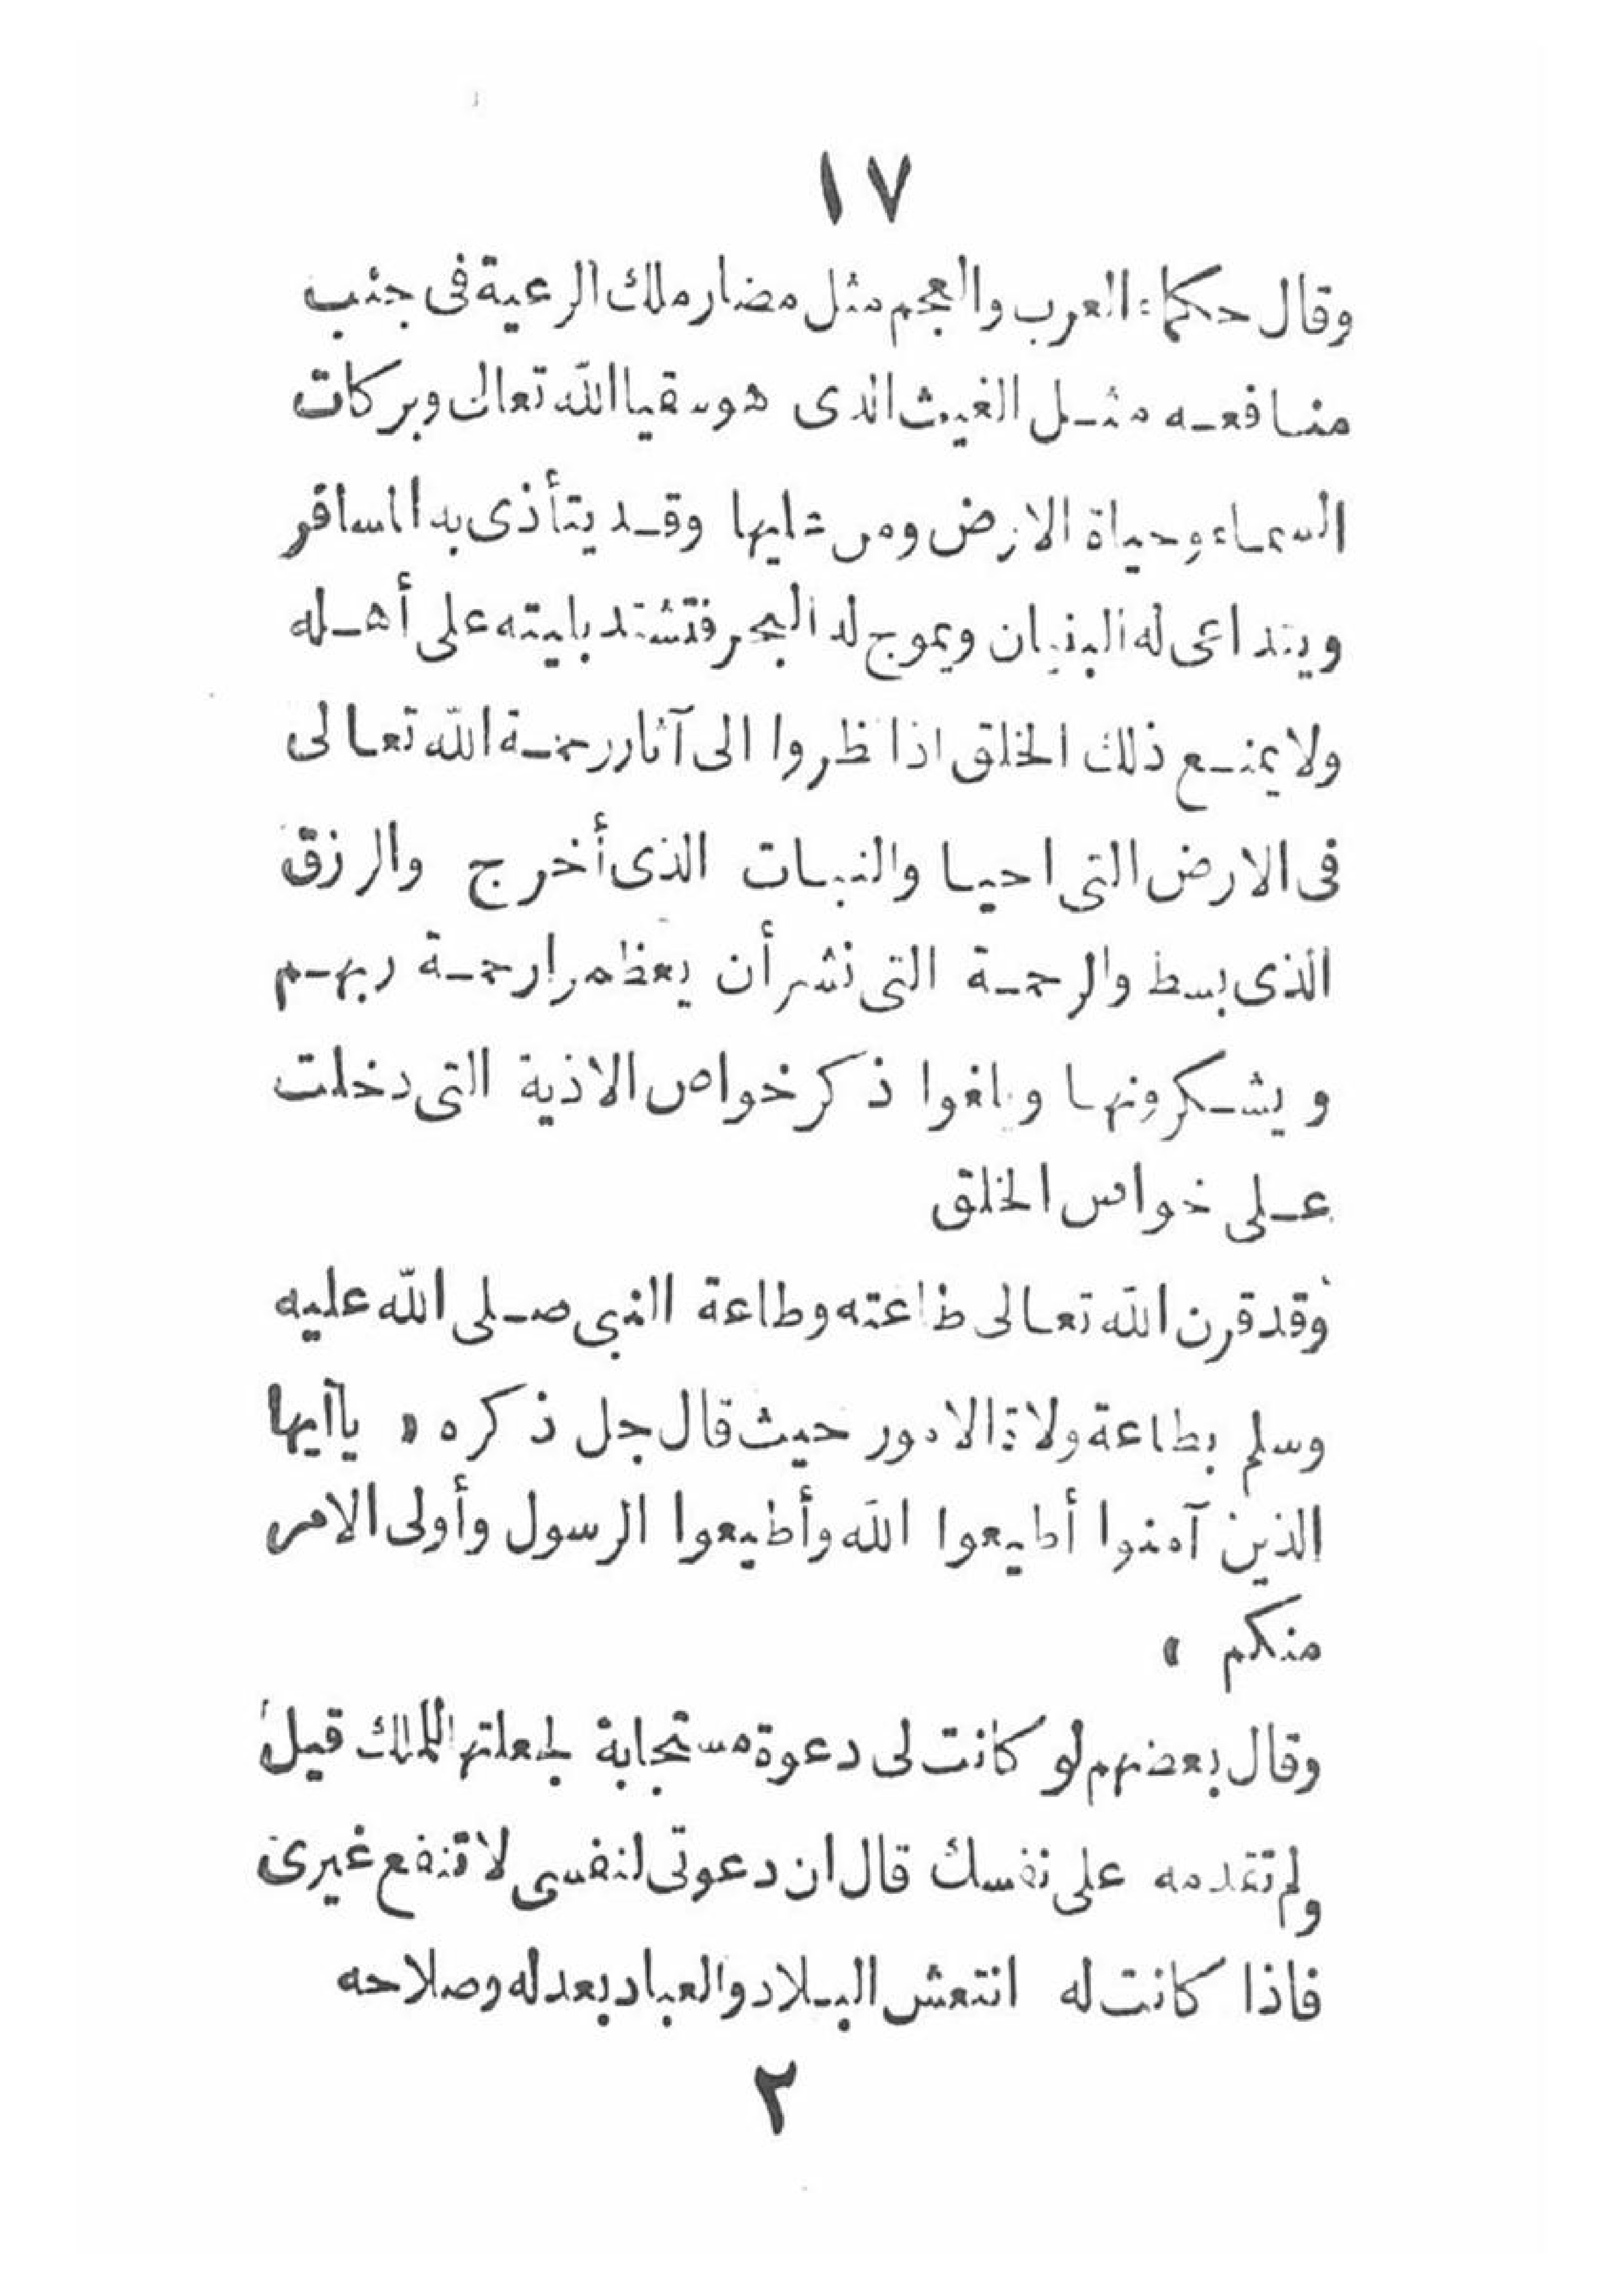 ١٧
وقال حكماء العرب والعجم مثل مضار ملك الرعية فى جنب
منافعه مثل الغيث الذى هو سقيا الله تعالى وبركات
السماء وحياة الارض ومن عليها وقد يتأذى به المسافر
ويتداعى له البنيان ويموج له البحر فتشتد بليته على أهله
ولا يمنع ذلك الخلق اذا نظروا الى آثار رحمة الله تعالى
فى الارض التى احيا والنبات الذى أخرج والرزق
الذى بسط والرحمة التى نشر أن يعظموا رحمة ربهم
ويشكرونها ويلغوا ذكر خواص الاذية التى دخلت
على خواص الخلق
وقد قرن الله تعالى طاعته وطاعة النبى صلى الله عليه
وسلم بطاعة ولاة الامور حيث قال جل ذكره « ياآيها
الذين آمنوا أطيعوا الله وأطيعوا الرسول وأولى الامر
منكم »
وقال بعضهم لو كانت لى دعوة مستجابة لجعلتها للملك قيل
ولم تقدمه على نفسك قال ان دعوتى لنفسى لا تنفع غيرى
فاذا كانت له انتعش البلاد والعباد بعدله وصلاحه
٢